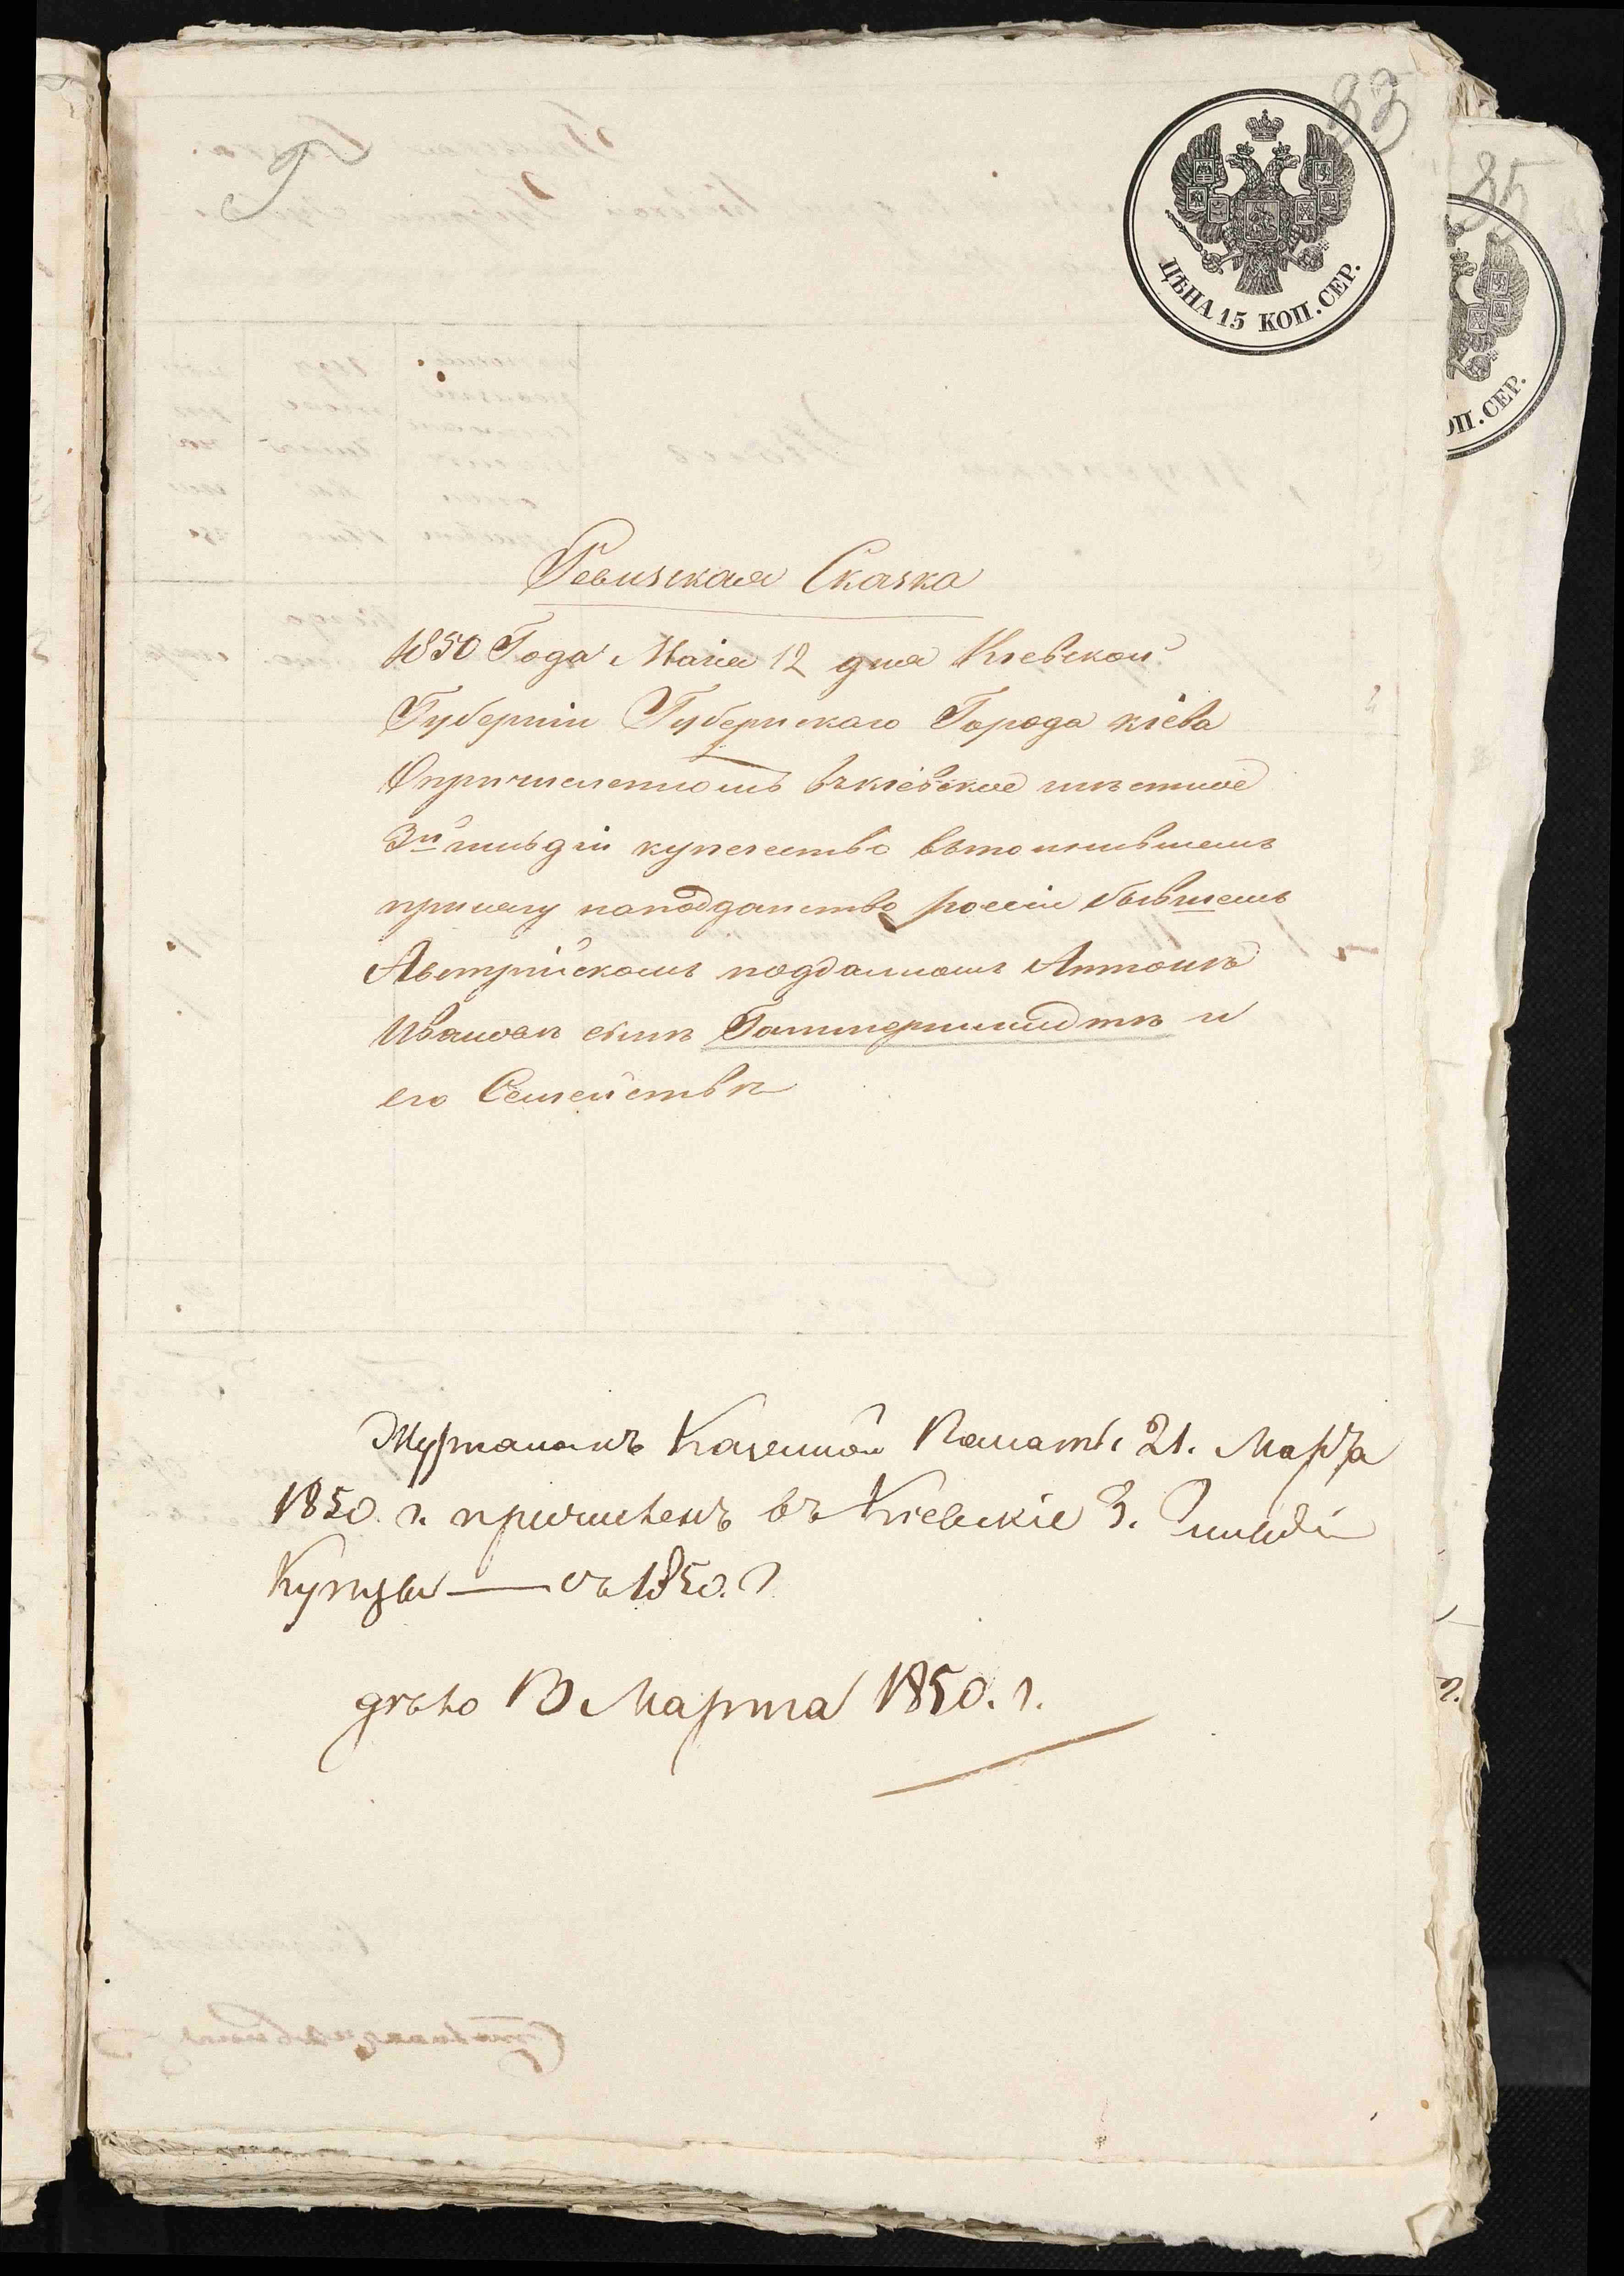 83
ЦѢНА 15 КОП. СЕР.
85
ОП. СЕР.
Ревизская Сказка
1850 Года Маія 12 дня Кіевской
Губерніи Губернскаго Города кіева
Опричисленномъ въкіевское местное
3й гильдіи купечество вътомпившемъ
присягу наподданство россіи бывшемъ
Австрійскомъ подданномъ Антонѣ
Ивановѣ сынѣ Гаммершмидтѣ и
его Семействѣ
Журналомъ Казенной Палаты 21. Марта
1850. г. причисленъ въ Кіевскіе 3. Гильдіи
Купцы — съ 1850. г
дѣло 13 Марта 1850. г.